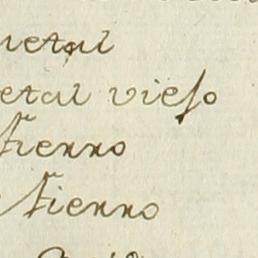 metal
metal vieso
fierro
fierro